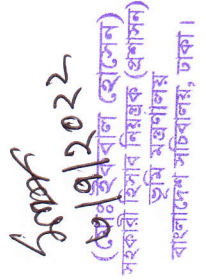 ৮/৭/২০২২
(মোঃ ইকবাল হোসেন)
সহকারী হিসাব নিয়ন্ত্রক (প্রশাসন)
ভূমি মন্ত্রণালয়
বাংলাদেশ সচিবালয়, ঢাকা।